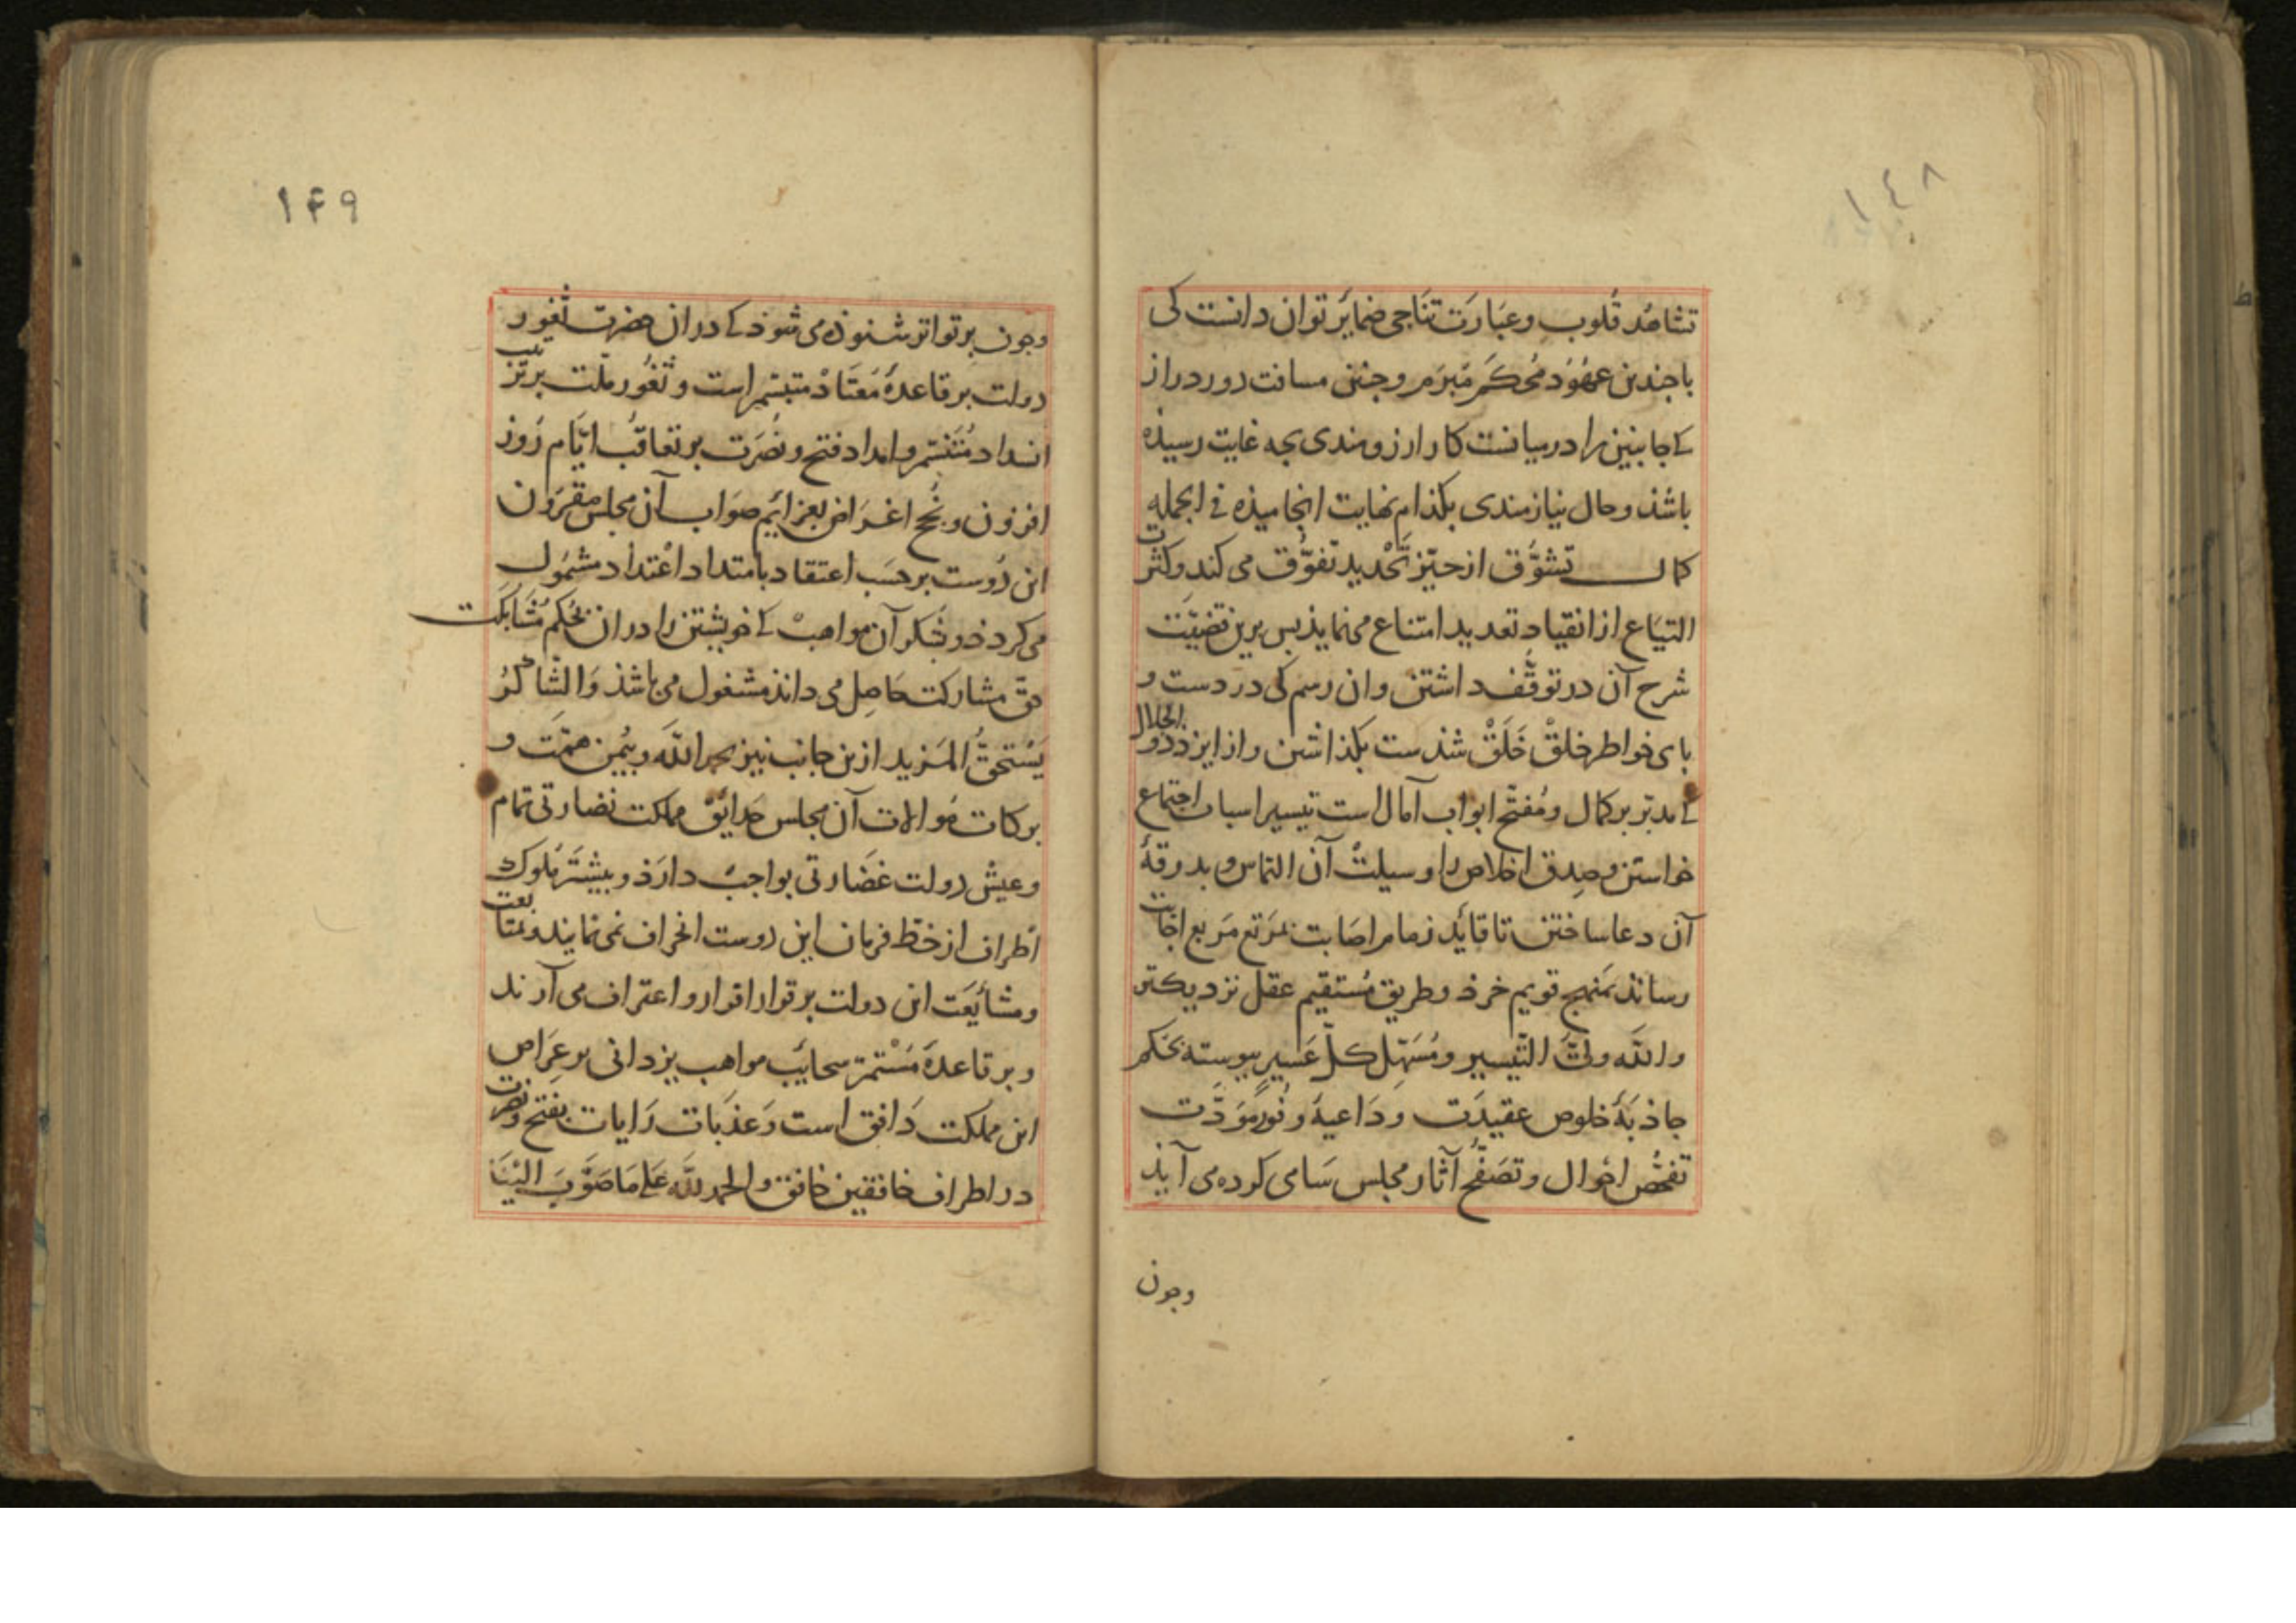 ١٤٨
تشاهُد قُلوب وعبَارَت تنَاجی ضمایَر توان دانست کی
باجندین عهُوُد مُحکَم مُبرَم وجنین مسافت دور دراز
کے جانبین را درمیانست کار ارزومندی بجه غایت رسیذه
باشذ وحال نیازمندی بکذام نهایت انجامیذه فی الجمله
کمال تشوُّق از حیّز تَحْدید تفوُّق می کند وکثرت
التیَاع از انقیاد تعدید امتناع می نمایذ بس برین قضیّت
شرح آن در توقُّف داشتن وان رسم کی در دست و
بای خواطر خلقْ خَلَقْ شذست بکذاشتن واز ایزد ذو الجلال
کے مدبّر بر کمال ومُفتّح ابواب آمال است تیسیر اسباب اجتماع
خواستن وصِدق اخلاص را وسیلتْ آن التماس و بدرقهٔ
آن دعا ساختن تا قایَد زمام اصَابت بمَرتع مَربع اجَابت
رساند بمَنهج قویم خرذ وطریق مُستقیم عقل نزدیکتر
والله ولیّ التّیسیر ومُسَهّل کلّ عَسیر بیوسته بحکم
جاذبَهٔ خلوص عقیدَت وَدَاعیهٔ وفُور مَوَدَّت
تفحُّص احْوال وتصَفُّح آثار مجلس سَامی کرده می آیذ
وجون
١۴٩
وجون بر تواتر شنوذه می شوذ کے در ان حضرت ثغور
دولت بر قاعدهٔ مُعتَادْ متبسّم است وثغُور ملّت بر ترتیب
انسداد مُتَنسّم وامداد فتح ونُصَرت بر تعاقُب ایّام رُوز
افزون ونُجح اغرَاض بعزایَم صوَاب آن مجلس مقرَون
این دُوست بر حسَب اعتقاد بامتداد اعْتداد مشمُول
می کردذ وبشکر آن مواهبْ کے خویشتن را در ان بحُکم مُشَابکت
حقّ مشارکت حَاصِل می دانذ مشغول می باشذ وَالشّاکرُ
یَسْتحقُّ المَزید ازین جانب نیز بحمد الله وبیُمن همّت و
برکات مُوالات آن مجلس حَدایَق مملکت نضارتی تمام
وعیش دولت غضَارتی بواجبْ دارَذ وبیشتَر مُلوک
اطراف از خطّ فرمان این دوست انحراف نمی نمایند ومتابعت
ومشایَعَت این دولت بر قرار اقرار واعتراف می آرند
وبر قاعدهٔ مُسْتمرّ سحایَب مواهب یزدانی بر عِرَاص
این مملکت دَافق است وَعَذبَات رَایات بفتح ونصرت
در اطراف خافقین خافق والحمد للّه عَلی مَا صَوَّبَ الیْنَا